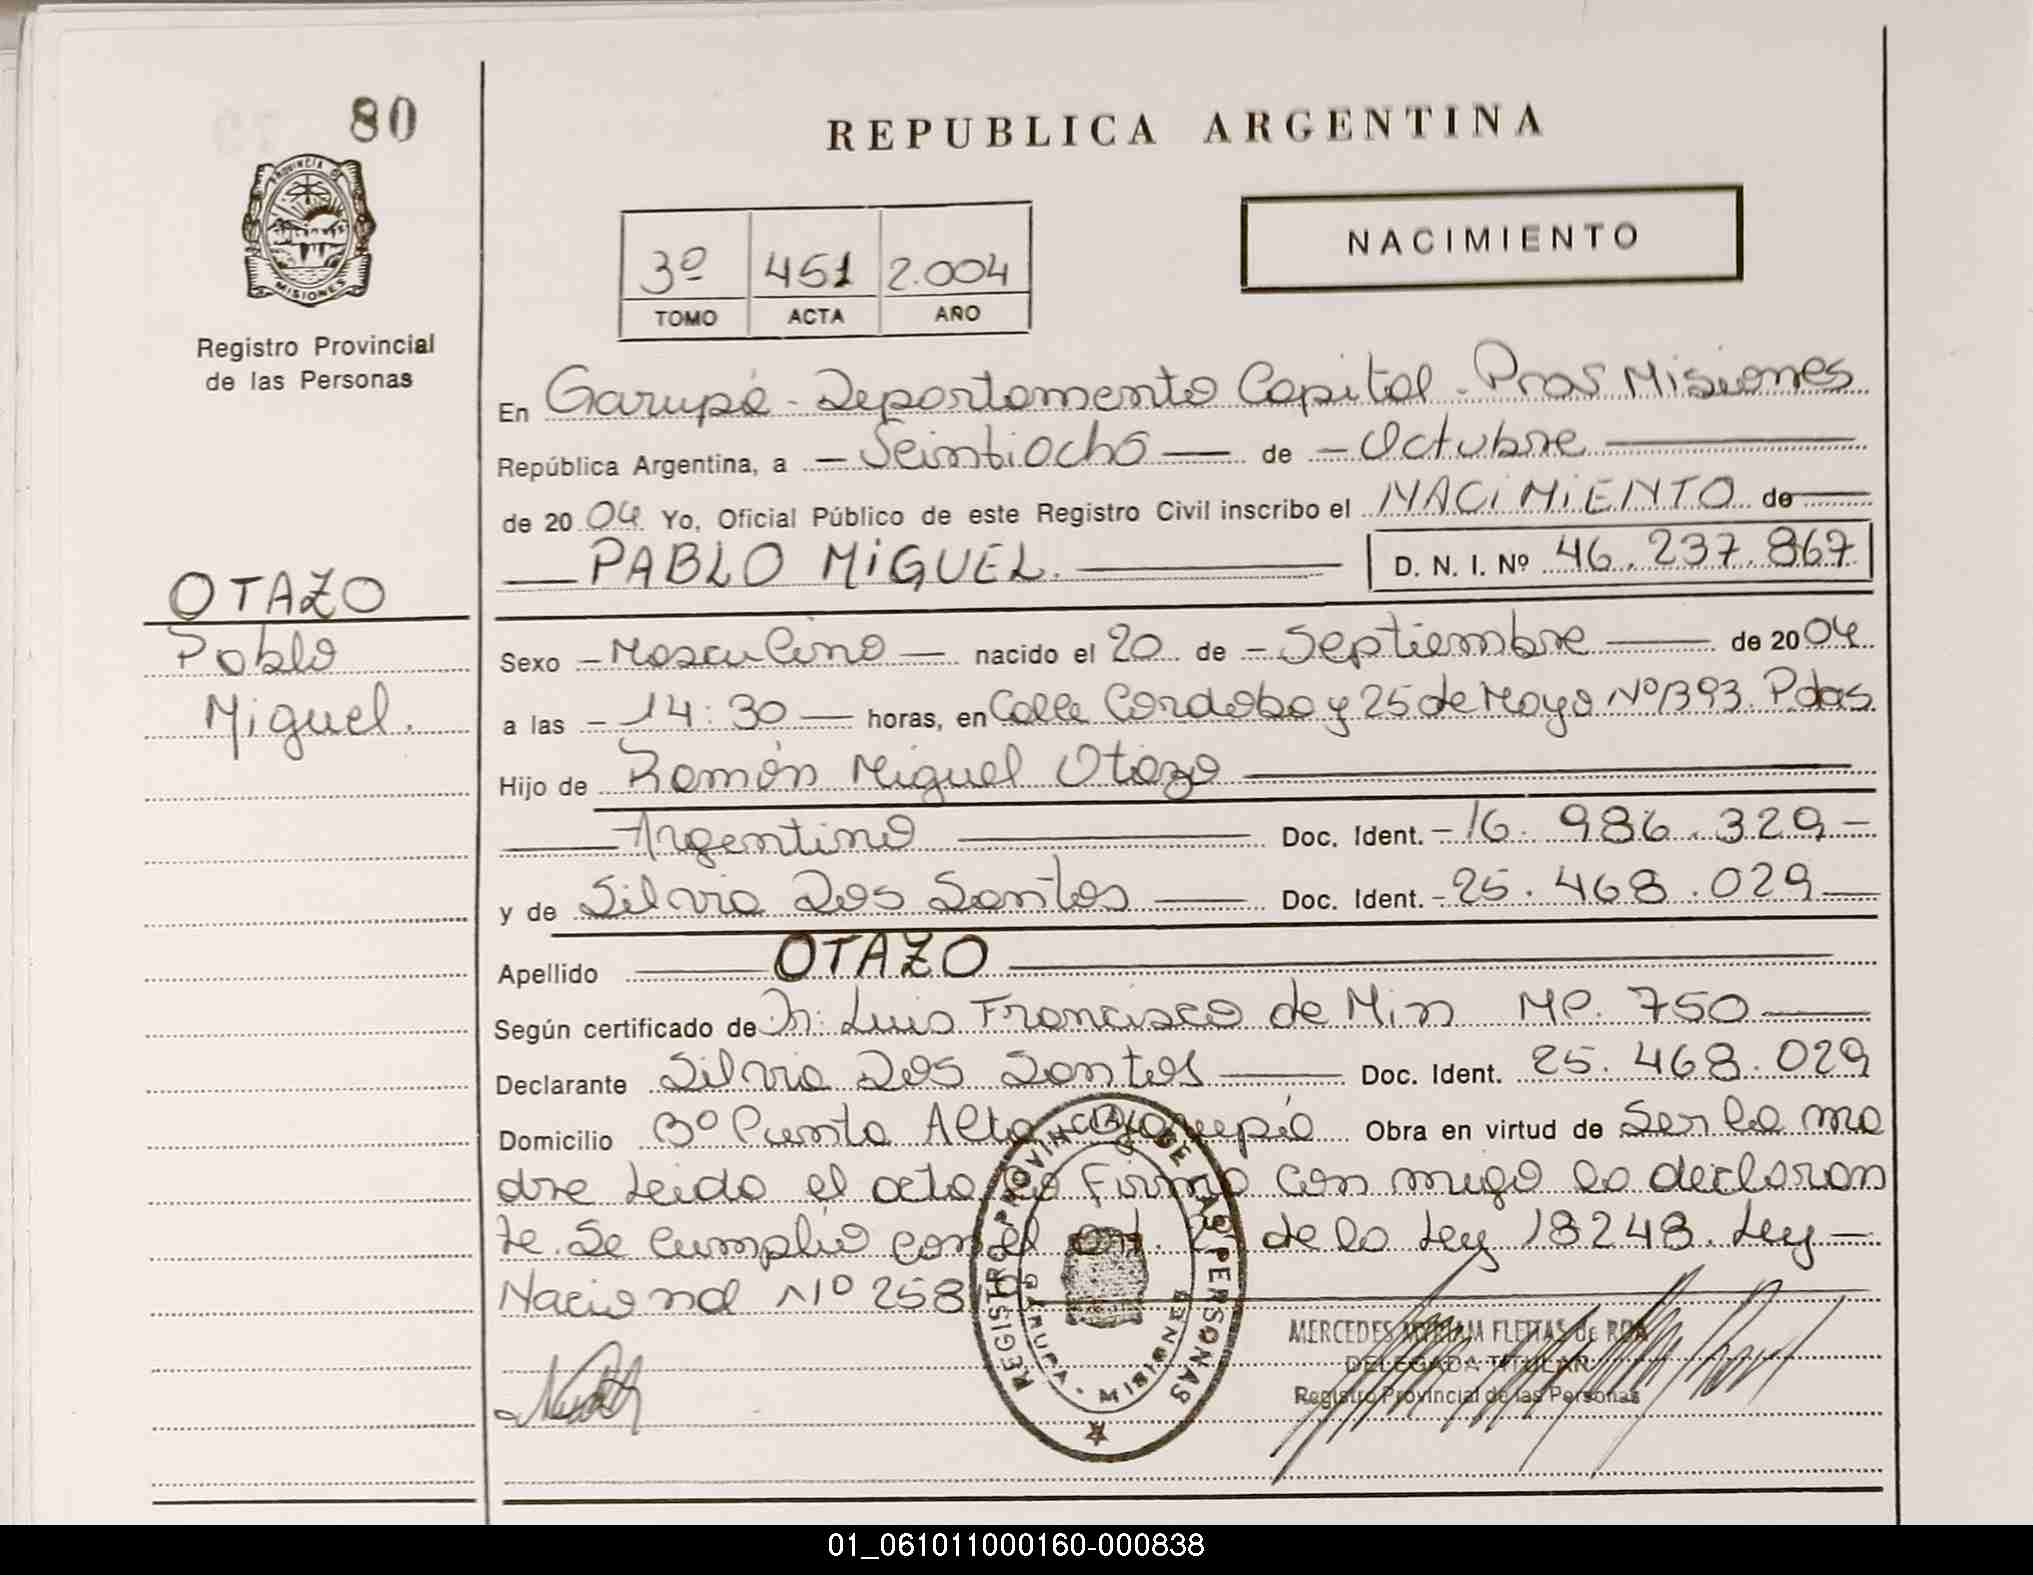 80
REPUBLICA ARGENTINA
PROVINCIA DE
MISIONES
Registro Provincial
de las Personas
3º 451 2.004
TOMO ACTA AÑO
NACIMIENTO
En Garupá - Departamento Capital - Misiones
República Argentina, a - Veintiocho - de - Octubre
de 2004 Yo, Oficial Público de este Registro Civil inscribo el NACIMIENTO de
PABLO MIGUEL. D. N. I. Nº 46.237.867
OTAZO
Pablo
Miguel.
Sexo - Masculino - nacido el 20 de - Septiembre de 2004
a las - 14:30 - horas, en Calle Cordoba y 25 de Mayo Nº 1393. Pdas
Hijo de Ramón Miguel Otazo
Argentino Doc. Ident. - 16. 986. 329 -
y de Silvia Dos Santos Doc. Ident. - 25. 468. 029
Apellido OTAZO
Según certificado de Dr: Luis Francisco de Min MP. 750
Declarante Silvia Dos Santos Doc. Ident. 25. 468. 029
Domicilio Bº Punta Alta Garupá Obra en virtud de Ser la ma
dre Leida el acta la Firma con migo la declaran
te. Se cumplio con el art. 2º de la Ley 18248. Ley -
Nacional Nº 258
REGISTRO PROVINCIAL DE LAS PERSONAS
GARUPA - MISIONES
MERCEDES MYRIAM FLEITAS de ROA
DELEGADA TITULAR
Registro Provincial de las Personas
01_061011000160-000838